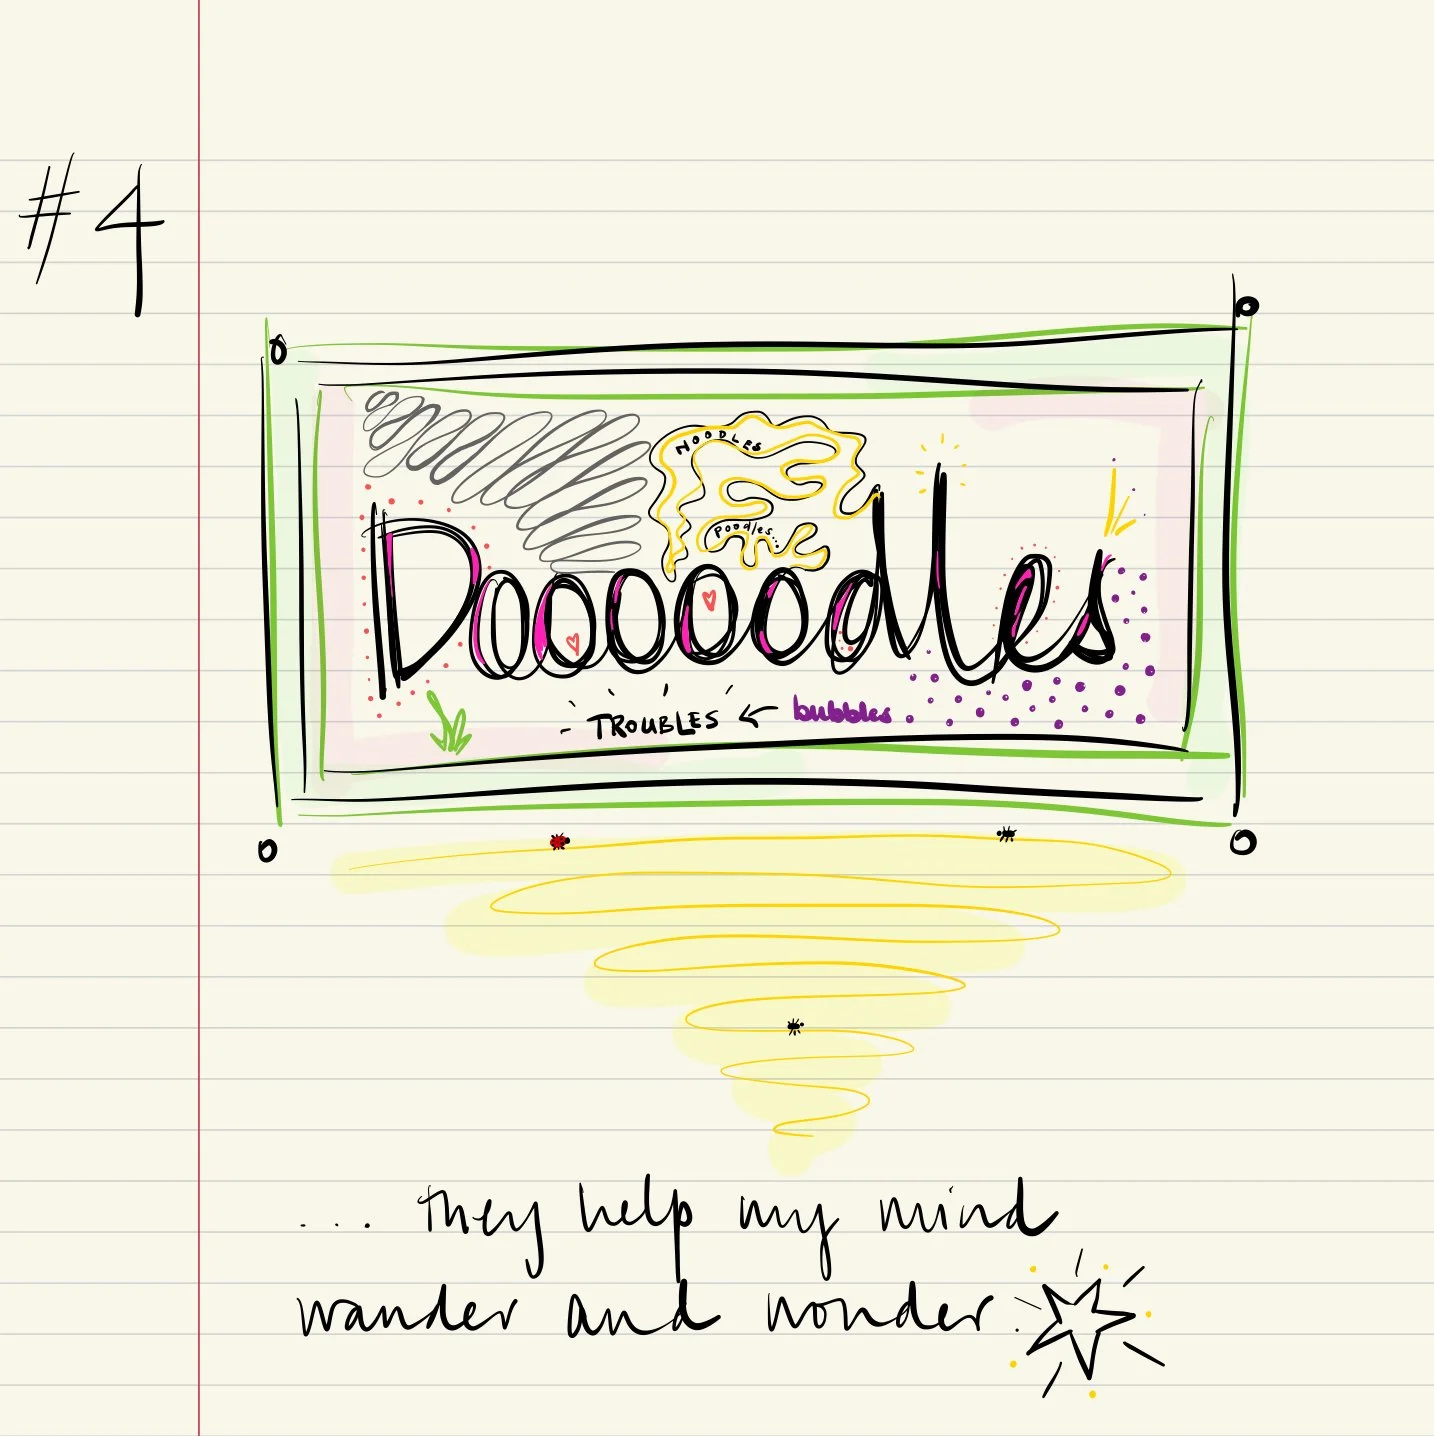 #4
NOODLES
Poodles...
Doooooodles
TROUBLES ← bubbles
... they help my mind
wander and wonder